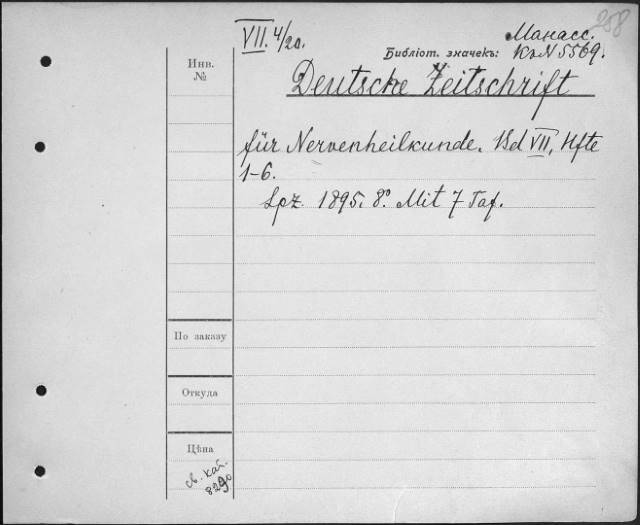 258
VII. 4/20.
Манасс.
Библіот. значекъ: Кз N 5569.
Инв.
№
Deutsche Zeitschrift
für Nervenheilkunde. Bd VII, Hfte
1-6.
Lpz. 1895. 8º. Mit 7 Taf.
По заказу
Откуда
Цѣна
св. кат.
8290